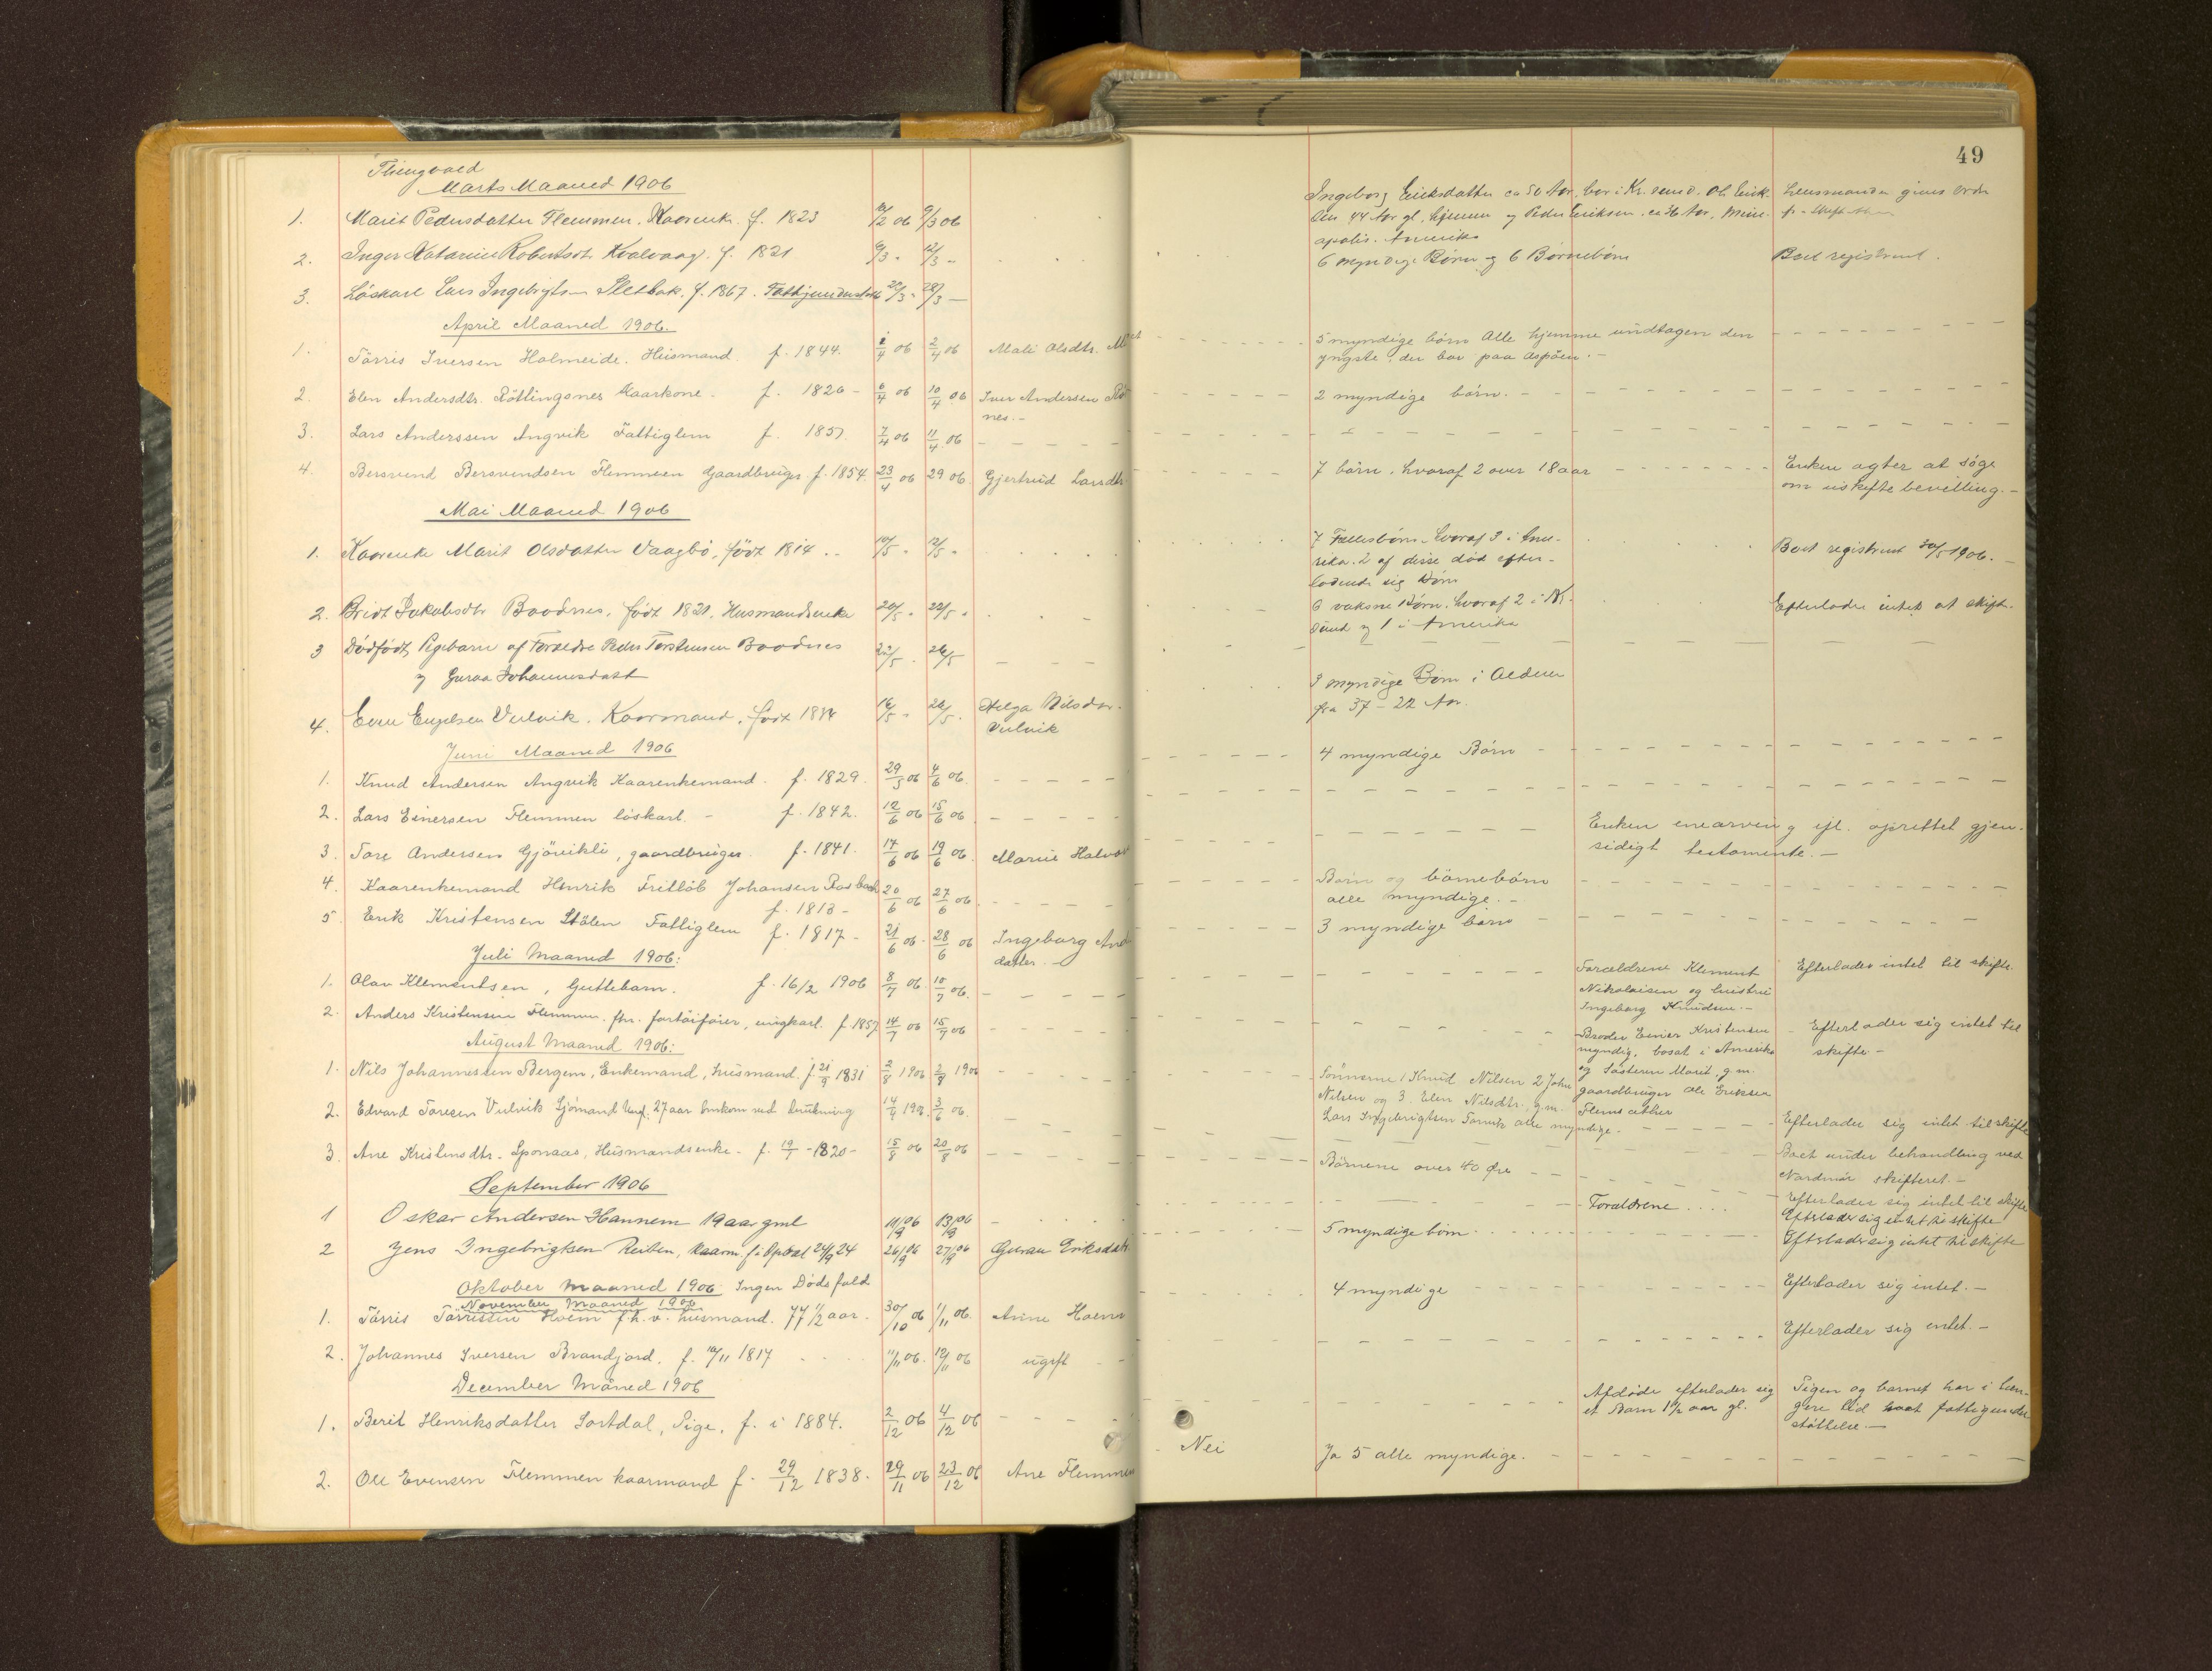 49
Thingvold
Marts Maaned 1906
1. Marit Pedersdatter Flemmen. Kaarenk. f. 1823 /2 06 9/3 06
Ingeborg Eriksdatter ca 50 Aar, bor i Kr.sund. Ole Erik-
sen 44 Aar gl. hjemme og Peder Eriksen, ca 36 Aar, Mine-
apolis. Amerika
Lensmanden gives Ordre
2. Inger Katarine Robertsdtr Kvalvaag. f. 1821 9/3 - 12/3 -
6 myndige Børn og 6 Børnebørn
Boet registreret.
3. Löskarl Lars Ingebrigtsen Sletbak. f. 1867. 20/3 - 28/3 -
April Maaned 1906.
1. Tårris Iversen Holmeide. Husmand. f. 1844. 1/4 06 2/4 06 Mali Olsdtr.
5 myndige börn Alle hjemme undtagen den
yngste, der bor paa Aspöen. -
2. Elen Andersdtr. Rötlingsnes Kaarkone. f. 1820 - 6/4 06 10/4 06 Iver Andersen Rö
nes. -
2 myndige börn. -
3. Lars Anderssen Angvik Fattiglem f. 1857. 7/4 06 11/4 06
4. Bersvend Bersvendsen Flemmen Gaardbruger f. 1854. 23/4 06 29 06. Gjertrud Larsdtr.
7 börn, hvoraf 2 over 18 aar
Enken agter at söge
om uskiftebevilling. -
Mai Maaned 1906
1. Kaarenke Marit Olsdatter Vaagbö, født 1814 .. 10/5 - 12/5 -
7 Fællesbörn, hvoraf 3 i Ame-
rika. 2 af disse död efter-
ladende sig Börn
Boet registreret 30/5 1906. -
2. Brit Jakobsdtr Boodnes, født 1821. Husmandsenke 20/5 - 22/5 -
6 voksne Børn, hvoraf 2 i Kr.
sund og 1 i Amerika
Efterlader intet at skifte.
3 Dødfødt Pigebarn af Forældre Peder Torstensen Boodnes 22/5 - 26/5
og Guraa Johannesdatt
4. Even Engelsen Vulvik. Kaarmand, født 16/5 - 26/5 - Helga Nilsdtr.
Vulvik
myndige Børn i Alderen
fra 37 - 22 Aar.
Juni Maaned 1906
1. Knud Andersen Angvik Kaarenkemand. f. 1829. 29/5 06 4/6 06.
4 myndige Börn
2. Lars Einersen Flemmen löskarl. - f. 1842. 12/6 06 15/6 06
3. Tore Andersen Gjövikli, gaardbruger f. 1841. 14/6 06 19/6 06. Marie Halvor
Enken enearving ifl. oprettet gjen-
sidigt testamente. -
4. Kaarenkemand Henrik Fritlöb Johansen 20/6 06 27/6 06.
f. 1813 -
Börn og börnebörn
alle myndige. -
5. Erik Kristensen Stölen Fattiglem f. 1817 - 21/6 06 - 28/6 06 Ingeborg And
datter -
3 myndige börn
Juli Maaned 1906:
1. Olav Klementsen, Guttebarn. f. 16/2 1906 8/7 06. 10/7 06.
Forældrene Klement
Nikolaisen og hustru
Ingeborg Knudsen. -
Efterlader intet til skifte.
2. Anders Kristensen Flemmen. fhv. fortöifører, ungkarl. f. 1857 14/7 06 15/7 06
Broder Einer Kristensen
myndig, bosat i Amerika
og Søsteren Marit, g.m.
gaardbruger Ole Eriksen
Flemsæther
Efterlader sig intet til
skifte -
August Maaned 1906:
1. Nils Johannessen Bergem, Enkemand, husmand. f. 21/9 1831 2/8 1906 2/8 1906
Sönnerne 1 Knud Nilsen 2 John
Nilsen og 3. Elen Nilsdtr. g.m.
Lars Ingebrigtsen Torvik alle myndige.
Efterlader sig intet til skifte
2. Edvard Toresen Vulvik Sjömand Ungk. 27 aar omkom ved drukning
Boet under behandling ved
Nordmør skifteret. -
3. Ane Kristensdtr. Sponaas, Husmandsenke. f. 19/7 - 1820 - 15/8 06 20/8 06
Börnene over 40 Aar
Efterlader sig intet til skifte
September 1906
1 Oskar Andersen Hannem 19 aar gml 11/9 06 13/9 06
Forældrene ....
Efterlader sig intet til skifte
2 Jens Ingebrigtsen Reiten, Kaarm f i Opdal 24/9 24 26/9 06 27/9 06 Gurau Eriksdatr
5 myndige börn
Efterlader sig intet til skifte
Oktober Maaned 1906 Ingen Dødsfald
November Maaned 1906
1. Tårris Tårrissen Hoem f.h.v. husmand. 77 1/2 aar. 30/10 06 1/11 06. Anne Hoem
4 myndige
Efterlader sig intet. -
2. Johannes Iversen Brandjord. f. 10/11 1817 11/11 06. 12/11 06 ugift
Efterlader sig intet. -
December Måned 1906
1. Berit Henriksdatter Sortdal, Pige, f. i 1884. 2/12 06 4/12 06
Afdøde efterlader sig
et Barn 1 1/2 aar gl.
Pigen og barnet har i læn-
gere tid havt fattigunder-
støttelse -
2. Ole Evensen Flemmen kaarmand f. 29/12 1838. 29/11 06 23/12 06 Ane Flemmen
Nei
Ja 5 alle myndige.